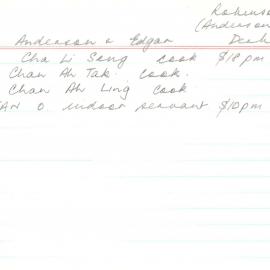 Robinso
(Anderson
Anderson & Edgar Desk
Cha Li Song cook $18 pm
Chan Ah Tak. cook.
Chan Ah Ling cook
AN O indoor servant $10 pm